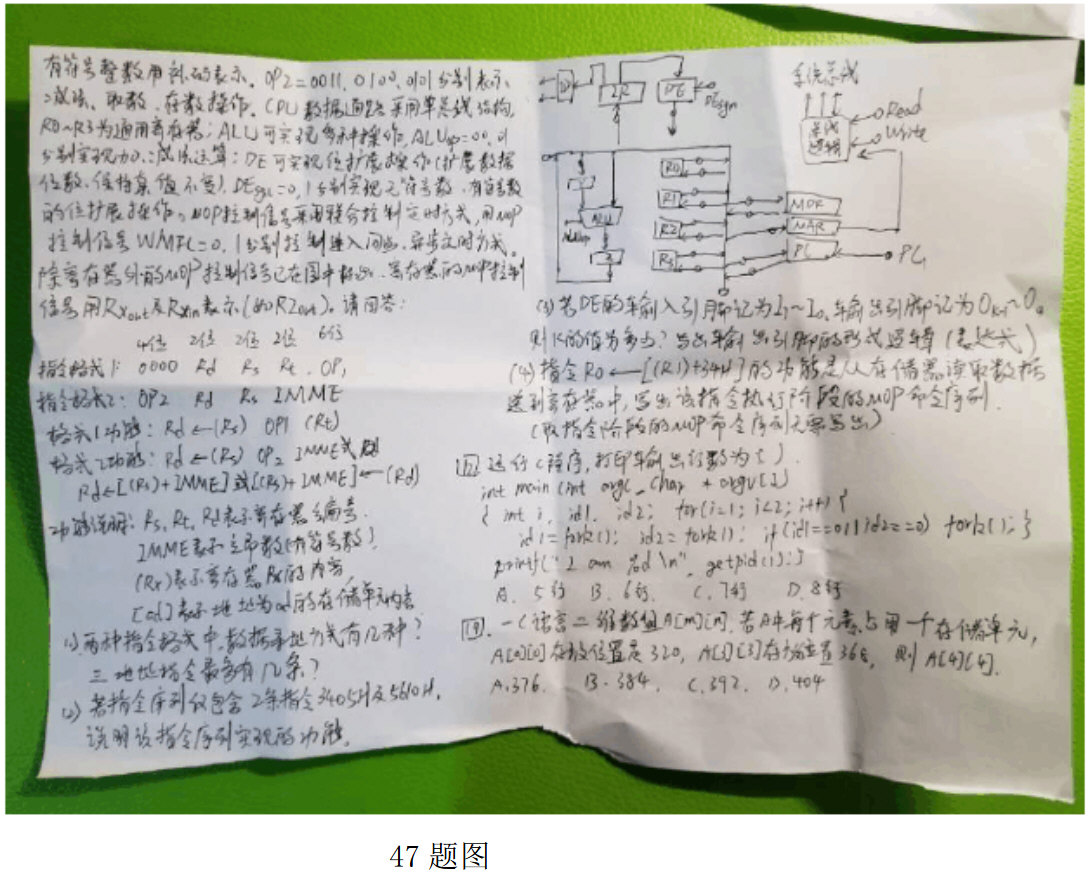 有符号整数用补码表示. OP2=0011, 0100, 0101分别表示
减法、取数、存数操作. CPU数据通路采用单总线结构,
R0~R3为通用寄存器; ALU可实现多种操作, ALUop=00, 01
分别实现加、减法运算; DE可实现位扩展操作(扩展数据
位数, 保持真值不变), DEsgn=0, 1分别实现无符号数、有符号数
的位扩展操作。MOP控制信号采用联合控制定时方式, 用MOP
控制信号WMFC=0, 1分别控制进入同步、异步定时方式。
除寄存器外的MOP控制信号已在图中标出. 寄存器的MOP控制
信号用RXout及RXin表示(如R2out). 请问答:
4位 2位 2位 2位 6位
指令格式1: 0000 Rd Rs Rt OP1
指令格式2: OP2 Rd Rs IMME
格式1功能: Rd←(Rs) OP1 (Rt)
格式2功能: Rd←(Rs) OP2 IMME或
Rd←[(Rs)+IMME]或[(Rs)+IMME]←(Rd)
功能说明: Rs, Rt, Rd表示寄存器编号.
IMME表示立即数(有符号数)
(Rx)表示寄存器Rx的内容
[ad]表示地址为ad的存储单元内容
1)两种指令格式中, 数据寻址方式有几种?
三地址指令最多有几条?
2) 若指令序列仅包含2条指令3405H及5610H,
说明该指令序列实现的功能.
IR DE
DEsgn
系统总线
总线
逻辑
Read
Write
R0
R1
R2
R3
ALU
ALUop
MDR
MAR
PC
(3)若DE的输入引脚记为I7~I0, 输出引脚记为OK-1~O0
则K的值为多少? 写出输出引脚的形成逻辑(表达式)
(4)指令R0←[(R1)+34H]的功能是从存储器读取数据
送到寄存器中, 写出该指令执行阶段的MOP命令序列.
(取指令阶段的MOP命令序列无需写出)
运行C程序, 打印输出行数为( ).
int main(int argc, char * argv[])
{ int i, id1, id2; for(i=1; i<2; i++) {
id1=fork(); id2=fork(); if(id1==0||id2==0) fork(); }
printf("I am %d \n", getpid());}
A. 5行 B. 6行 C. 7行 D. 8行
一C语言二维数组A[m][n], 若A中每个元素占用一个存储单元,
A[0][0]存放位置是320, A[3][3]存放位置368, 则A[4][4].
A.376. B.384. C.392. D.404
47 题图